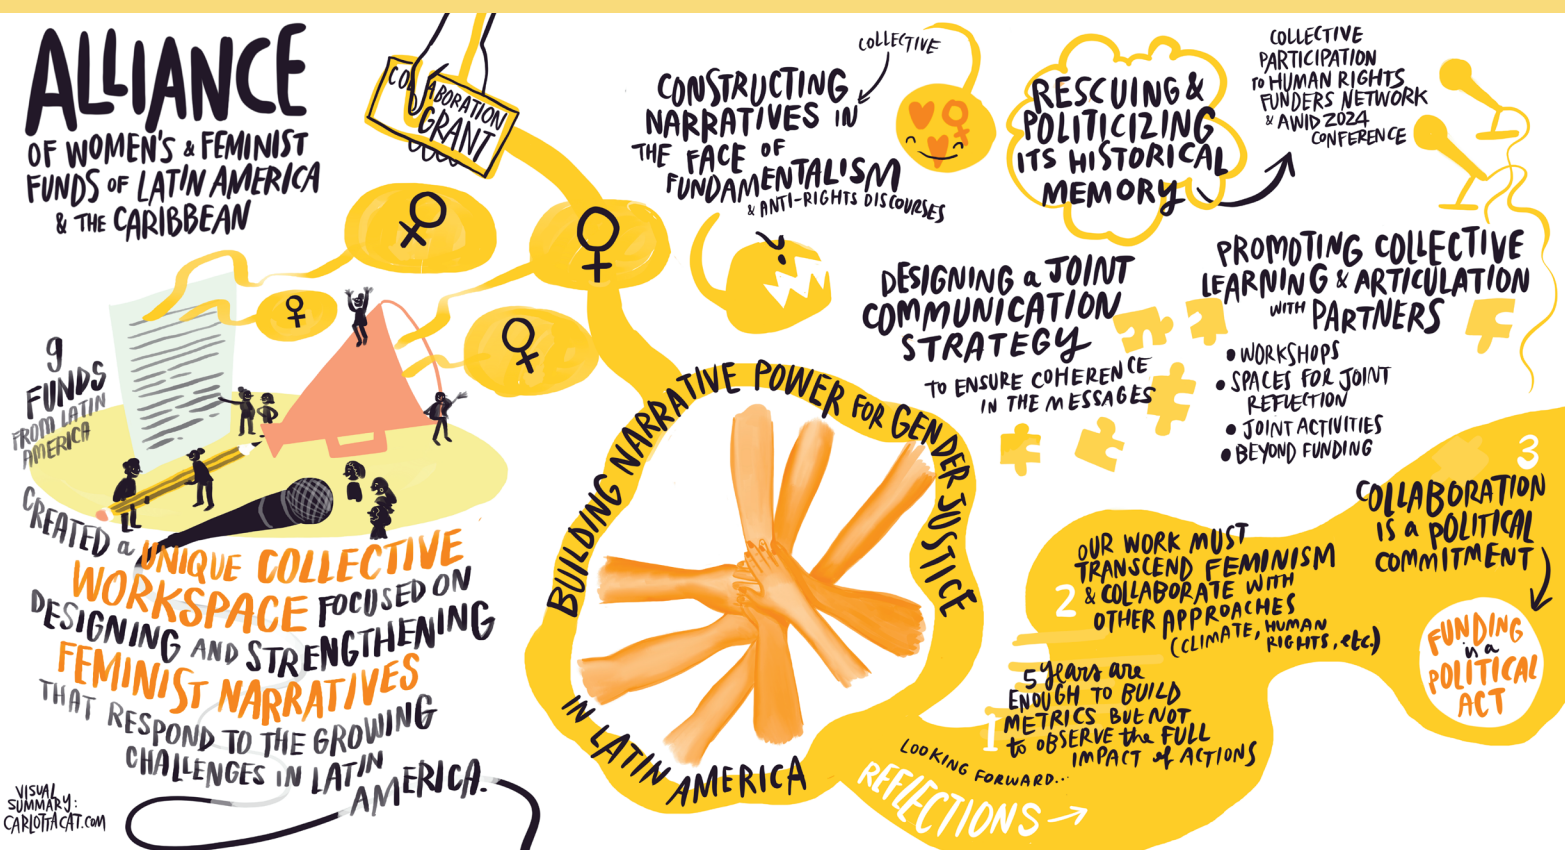 ALLIANCE
OF WOMEN'S & FEMINIST
FUNDS OF LATIN AMERICA
& THE CARIBBEAN
COLLABORATION
GRANT
9
FUNDS
FROM LATIN
AMERICA
CREATED a UNIQUE COLLECTIVE
WORKSPACE FOCUSED ON
DESIGNING AND STRENGTHENING
FEMINIST NARRATIVES
THAT RESPOND TO THE GROWING
CHALLENGES IN LATIN
AMERICA.
VISUAL
SUMMARY:
CARLOTTACAT.COM
COLLECTIVE
CONSTRUCTING
NARRATIVES IN
THE FACE OF
FUNDAMENTALISM
& ANTI-RIGHTS DISCOURSES
RESCUING &
POLITICIZING
ITS HISTORICAL
MEMORY
COLLECTIVE
PARTICIPATION
to HUMAN RIGHTS
FUNDERS NETWORK
& AWID 2024
CONFERENCE
DESIGNING a JOINT
COMMUNICATION
STRATEGY
TO ENSURE COHERENCE
IN THE MESSAGES
PROMOTING COLLECTIVE
LEARNING & ARTICULATION
WITH PARTNERS
• WORKSHOPS
• SPACES FOR JOINT
REFLECTION
• JOINT ACTIVITIES
• BEYOND FUNDING
BUILDING NARRATIVE POWER FOR GENDER JUSTICE
IN LATIN AMERICA
LOOKING FORWARD...
REFLECTIONS →
1
5 years are
ENOUGH TO BUILD
METRICS BUT NOT
to OBSERVE the FULL
IMPACT of ACTIONS
2
OUR WORK MUST
TRANSCEND FEMINISM
& COLLABORATE WITH
OTHER APPROACHES
(CLIMATE, HUMAN
RIGHTS, etc.)
3
COLLABORATION
IS a POLITICAL
COMMITMENT
FUNDING
is a
POLITICAL
ACT